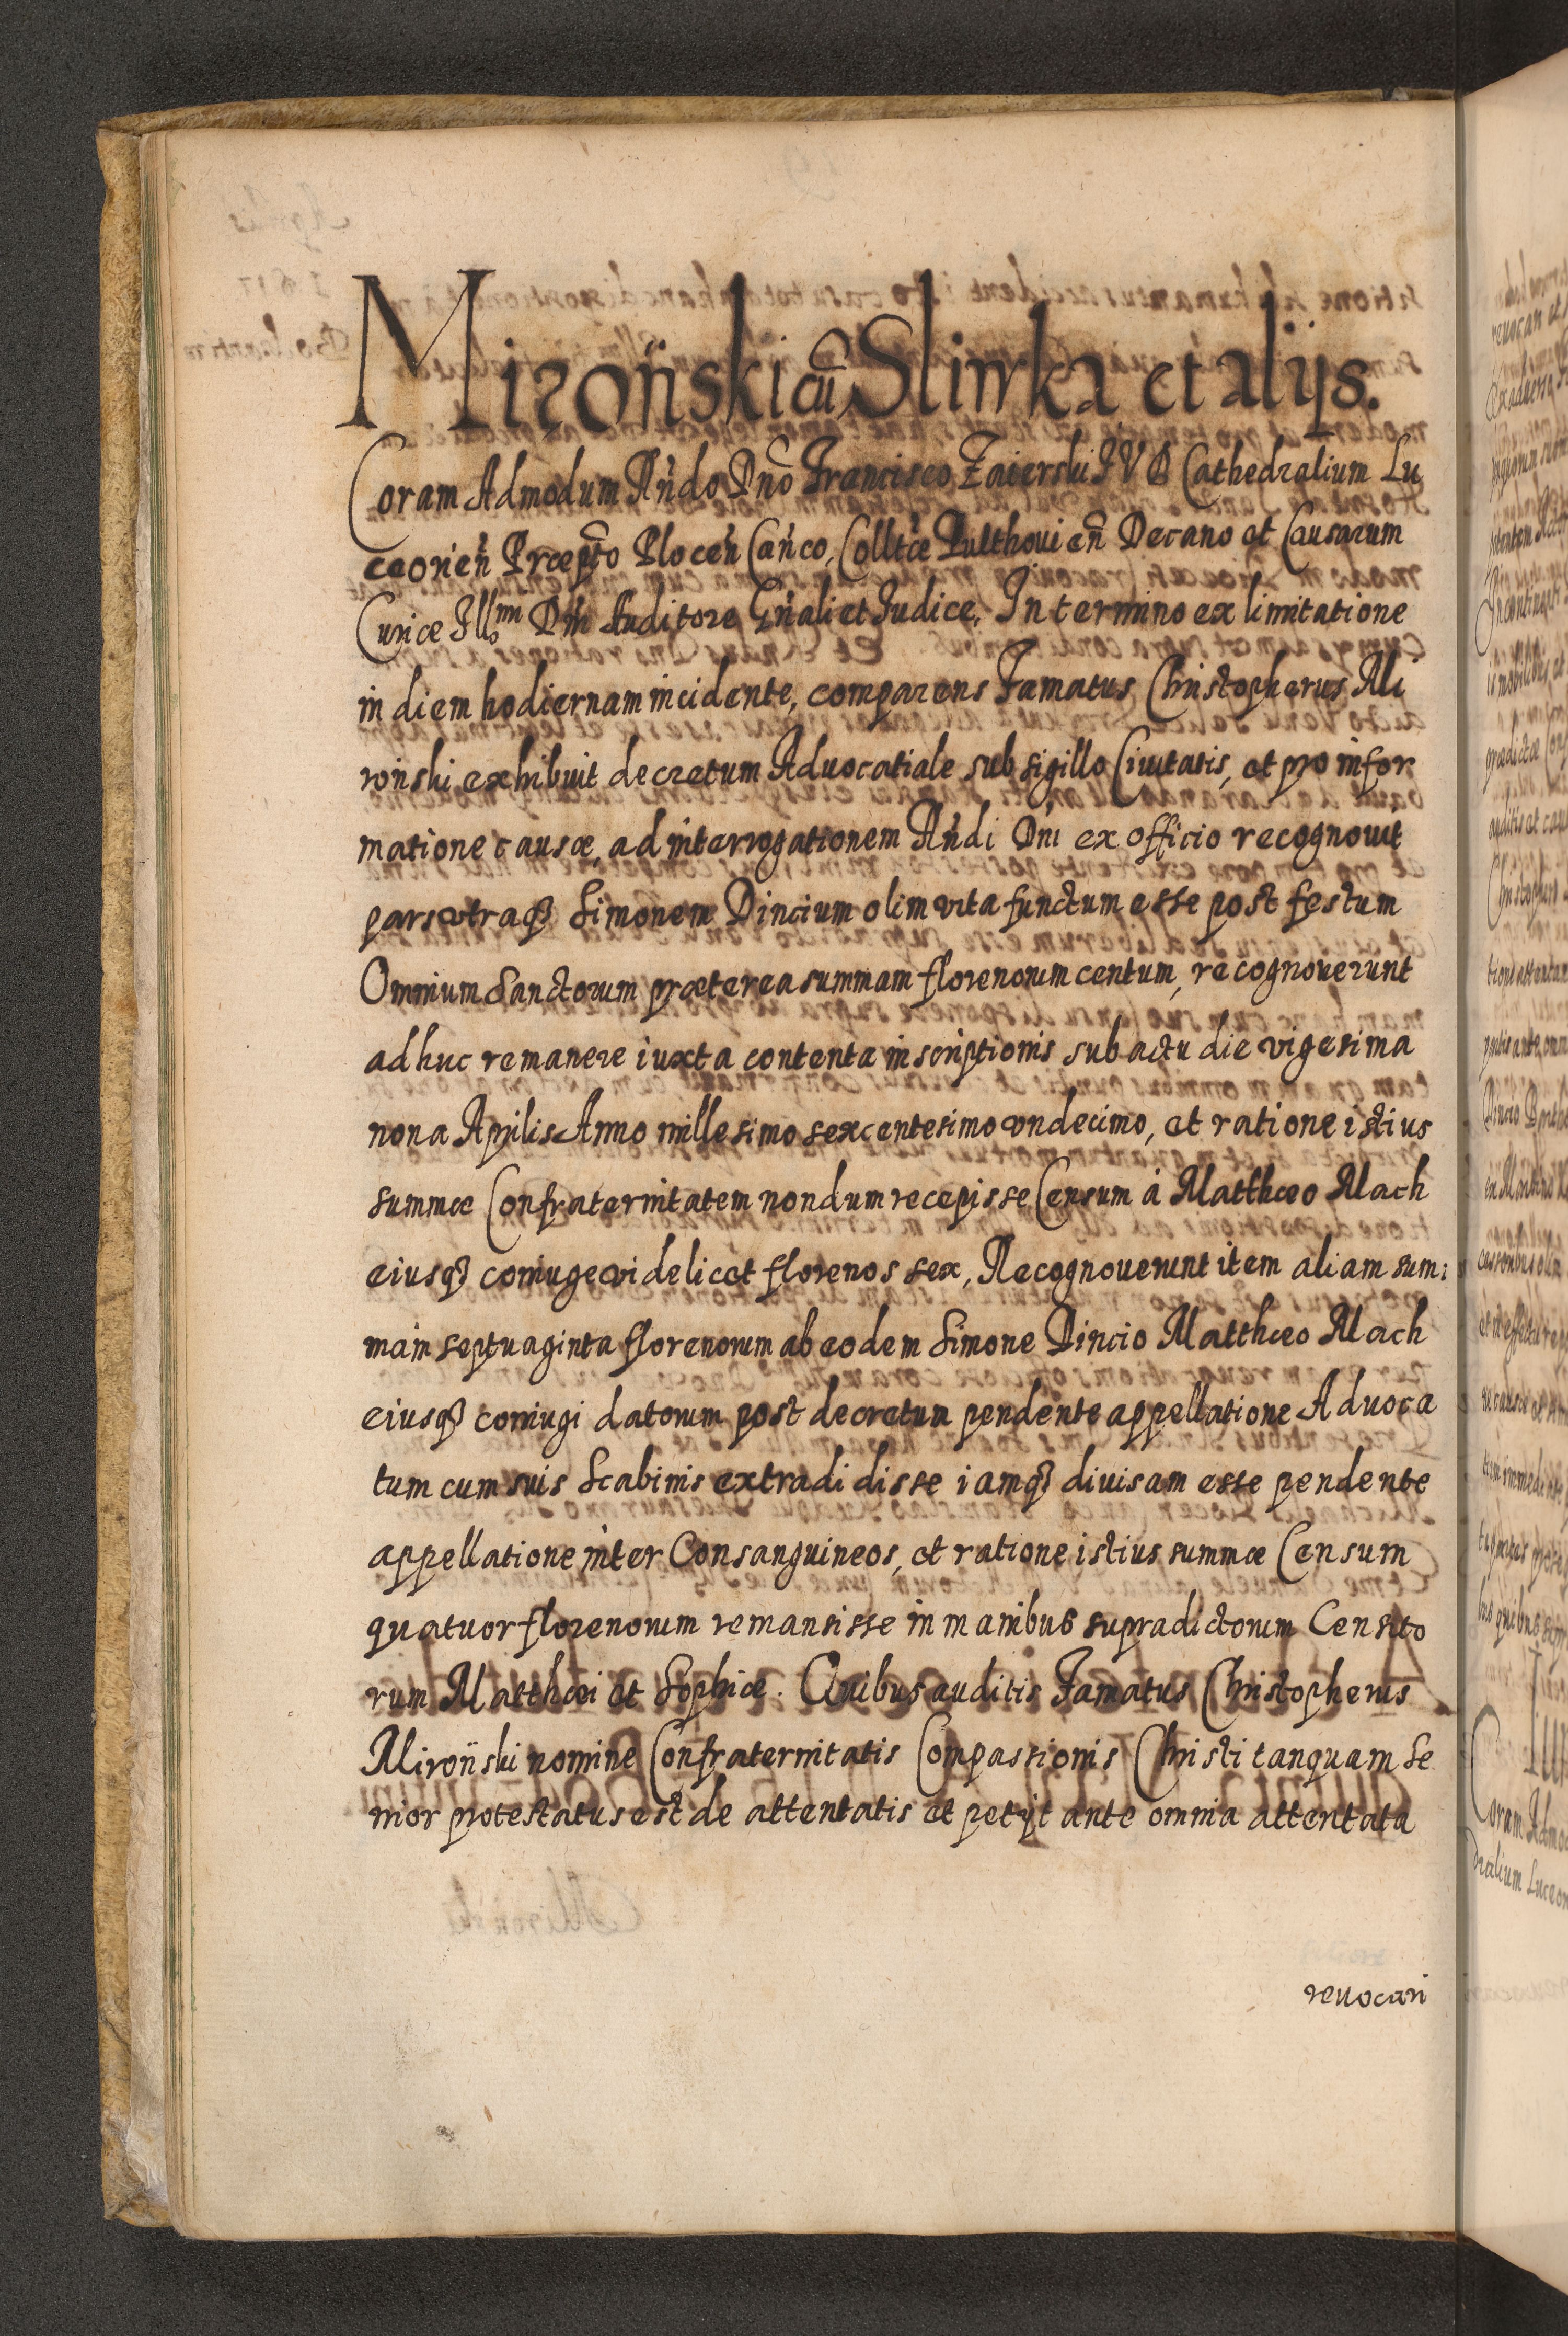 Mirońskicū Sliwka et alijs.
Coram Admodum Rńdo Dno Francisco Zaierski I V D Cathedralium Lu
ceorień Præpto Plocen Cańco, Colltæ Pulthouien Decano et Causarum
Curiæ Illmi Dni Auditore Gńali et Iudice, In termino ex limitatione
in diem hodiernam incidente, comparens Famatus Christopherus Mi
roinski exhibuit decretum Aduocatiale sub sigillo Ciuitatis, et pro infor
matione causæ, ad interrogationem Rńdi Dni ex officio recognouit
pars vtraq Simonem Dincium olim vita functum esse post festum
Omnium Sanctorum præterea summam florenorum centum, recognouerunt
adhuc remanere iuxta contenta inscriptionis sub actu die vigesima
nona Aprilis Anno millesimo sexcentesimo vndecimo, et ratione istius
summæ Confraternitatem nondum recepisse Censum á Matthæo Mach
eiusq coniuge videlicet florenos sex, Recognouerunt item aliam sum:
mam septuaginta florenorum ab eodem Simone Dincio Matthæo Mach
eiusq coniugi datorum post decretum pendente appellatione Aduoca
tum cum suis Scabinis extradidisse iamq diuisam esse pendente
appellatione inter Consanguineos, et ratione istius summæ Censum
quatuor florenorum remansisse in manibus supradictorum Censito
rum Matthæi et Sophiæ. Quibus auditis Famatus Christopherus
Miroński nomine Confraternitatis Compassionis Christi tanquam Se
nior protestatus est de attentatis et petijt ante omnia attentata
reuocari